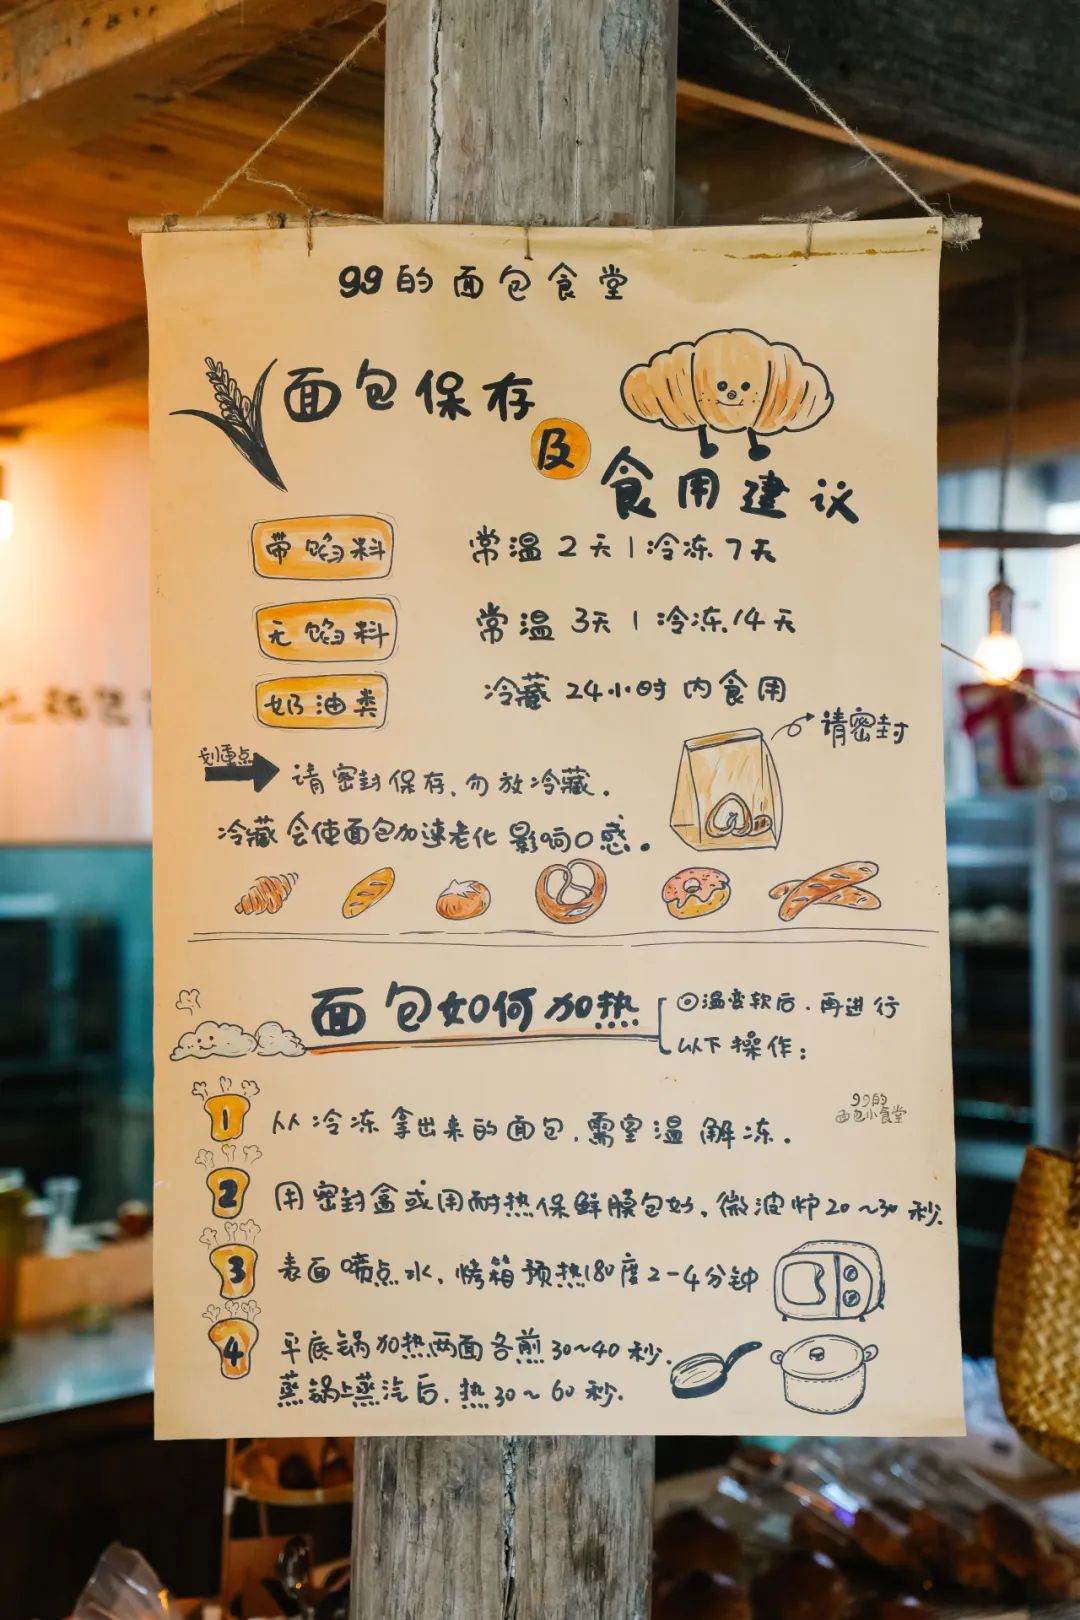 99的面包食堂
面包保存
及
食用建议
带馅料 常温2天|冷冻7天
无馅料 常温3天|冷冻14天
奶油类 冷藏24小时内食用
请密封
划重点
请密封保存,勿放冷藏。
冷藏会使面包加速老化影响口感。
面包如何加热
回温变软后,再进行
以下操作:
99的
面包小食堂
1 从冷冻拿出来的面包,需室温解冻。
2 用密封盒或用耐热保鲜膜包好,微波炉20~30秒.
3 表面喷点水,烤箱预热180度2-4分钟
4 平底锅加热两面各煎30~40秒.
蒸锅上蒸汽后,热30~60秒.